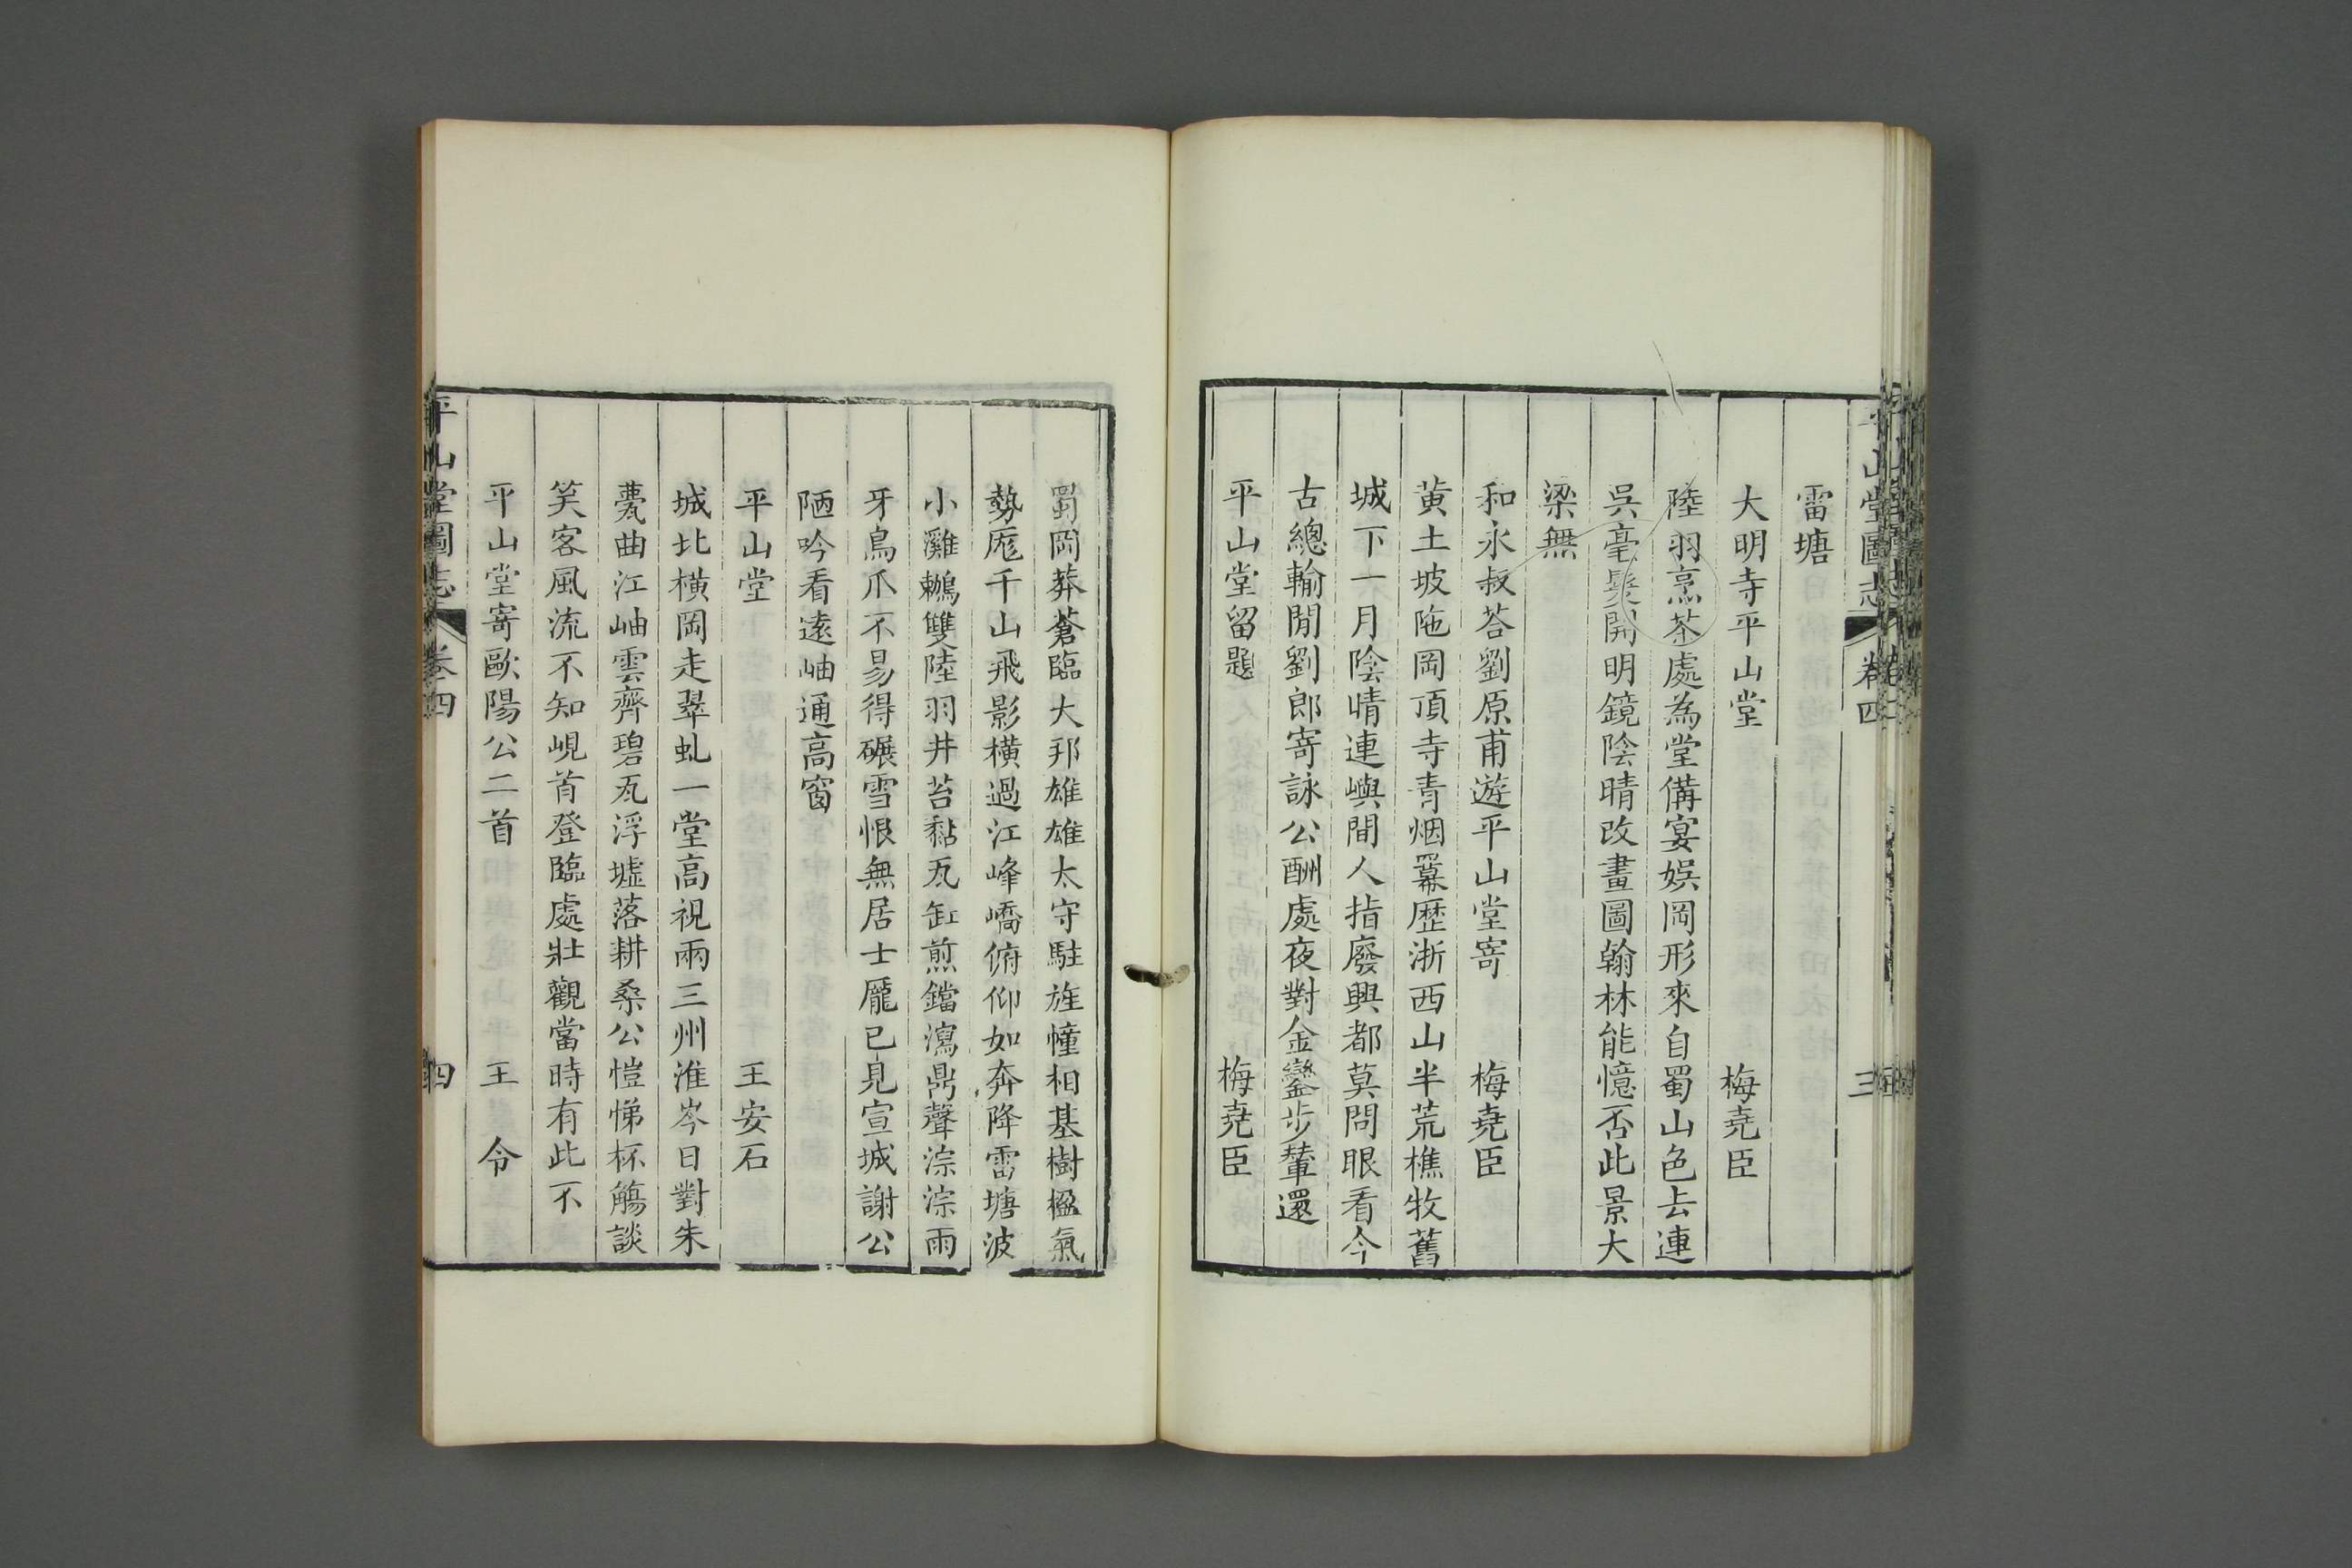 平山堂圖志 卷四 三
雷塘
大明寺平山堂 梅堯臣
陸羽烹茶處為堂備宴娛岡形來自蜀山色去連
吳毫髮開明鏡陰晴改畫圖翰林能憶否此景大
梁無
和永叔荅劉原甫遊平山堂寄 梅堯臣
黄土坡陁岡頂寺青烟羃歴浙西山半荒樵牧舊
城下一月陰晴連嶼間人指廢興都莫問眼看今
古總輸閒劉郎寄詠公酬處夜對金鑾步輦還
平山堂留題 梅堯臣
蜀岡莽蒼臨大邦雄雄太守駐旌幢相基樹楹氣
勢厖千山飛影橫過江峰嶠俯仰如奔降雷塘波
小鸂鶒雙陸羽井苔黏瓦缸煎鐺瀉鼎聲淙淙雨
牙鳥爪不易得碾雪恨無居士龐已見宣城謝公
陋吟看遠岫通高窗
平山堂 王安石
城北橫岡走翠虬一堂高視兩三州淮岑日對朱
甍曲江岫雲齊碧瓦浮墟落耕桑公愷悌杯觴談
笑客風流不知峴首登臨處壯觀當時有此不
平山堂寄歐陽公二首 王令
平山堂圖志 卷四 四